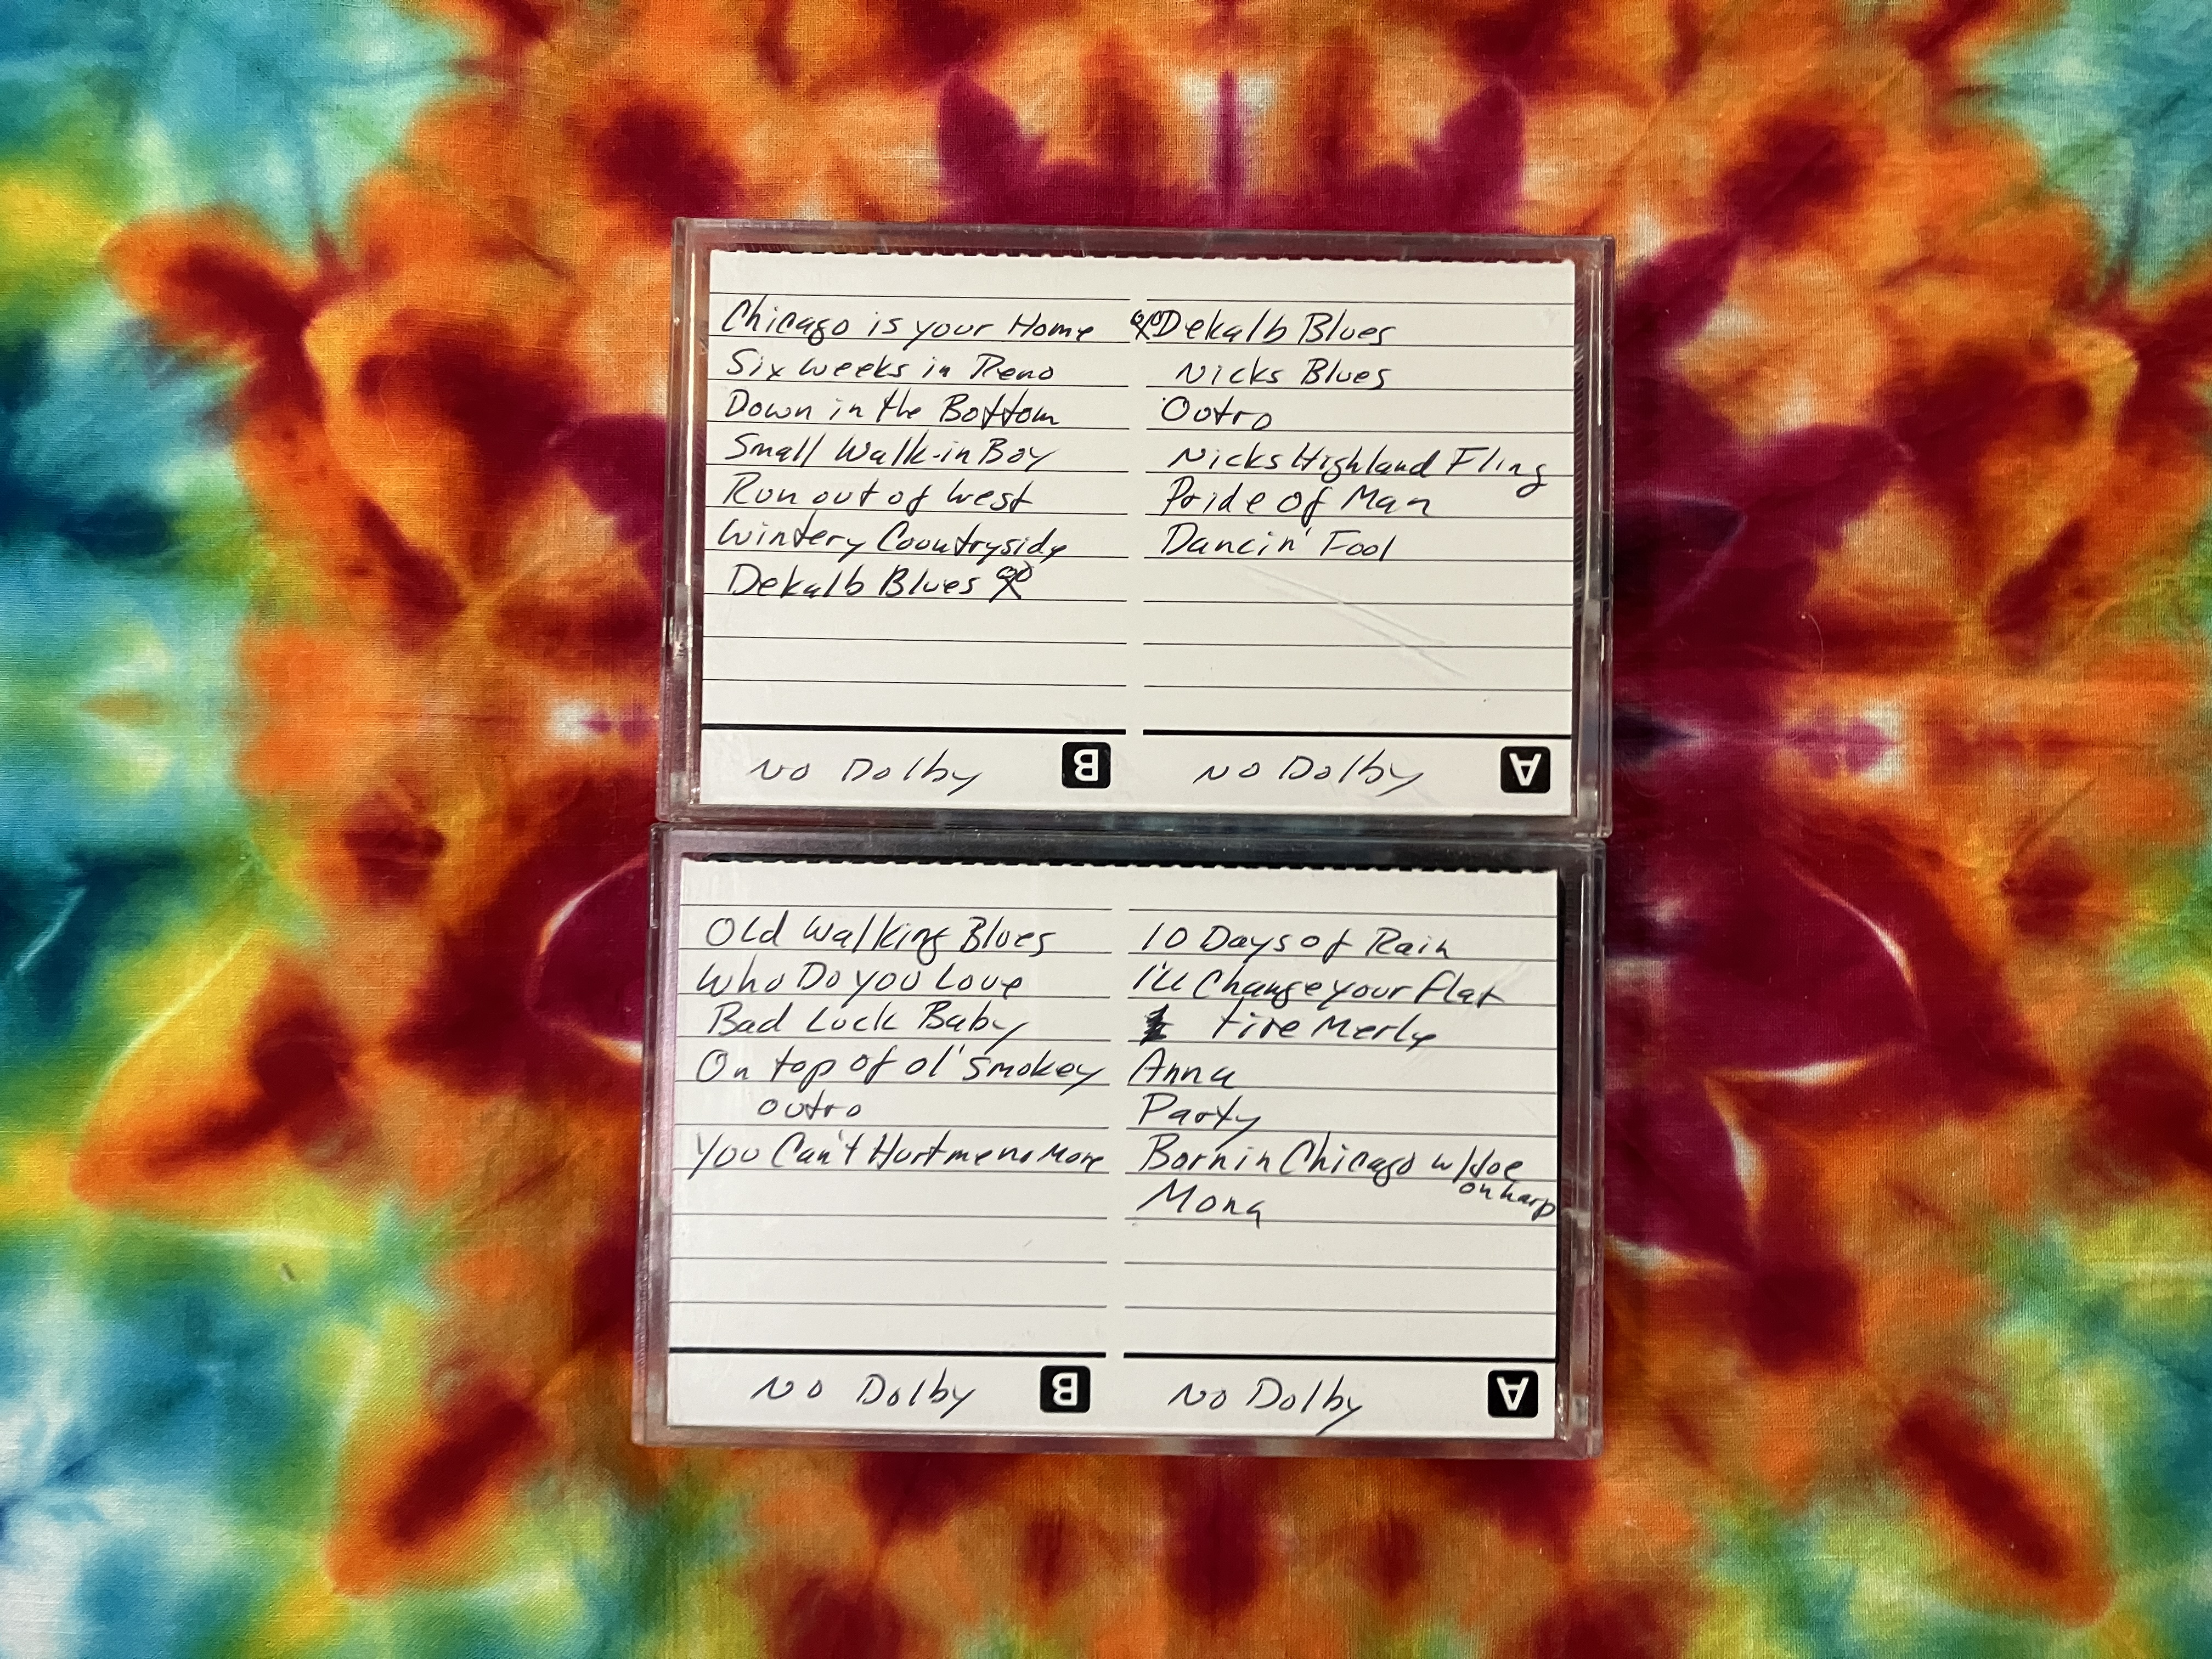 Chicago is your Home
Six weeks in Reno
Down in the Bottom
Small Walk-in Boy
Run out of West
Wintery Countryside
Dekalb Blues
No Dolby B
Dekalb Blues
Nicks Blues
Outro
Nicks Highland Fling
Pride of Man
Dancin' Fool
No Dolby A
Old Walking Blues
Who Do you Love
Bad Luck Baby
On top of ol' Smokey
outro
You Can't Hurt me no More
No Dolby B
10 Days of Rain
I'll Change your flat
tire Merle
Anna
Party
Born in Chicago w/Joe
on harp
Mona
No Dolby A